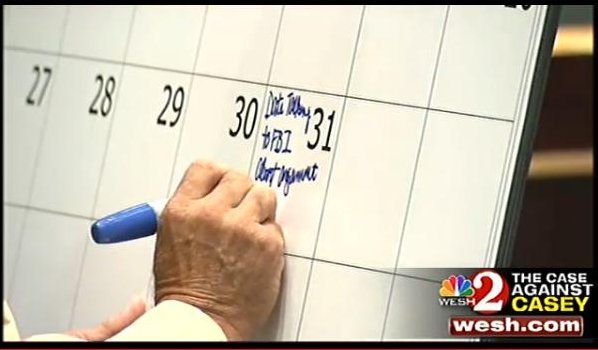 27
28
29
30
31
Date
to FBI
About
WESH 2
THE CASE
AGAINST
CASEY
wesh.com